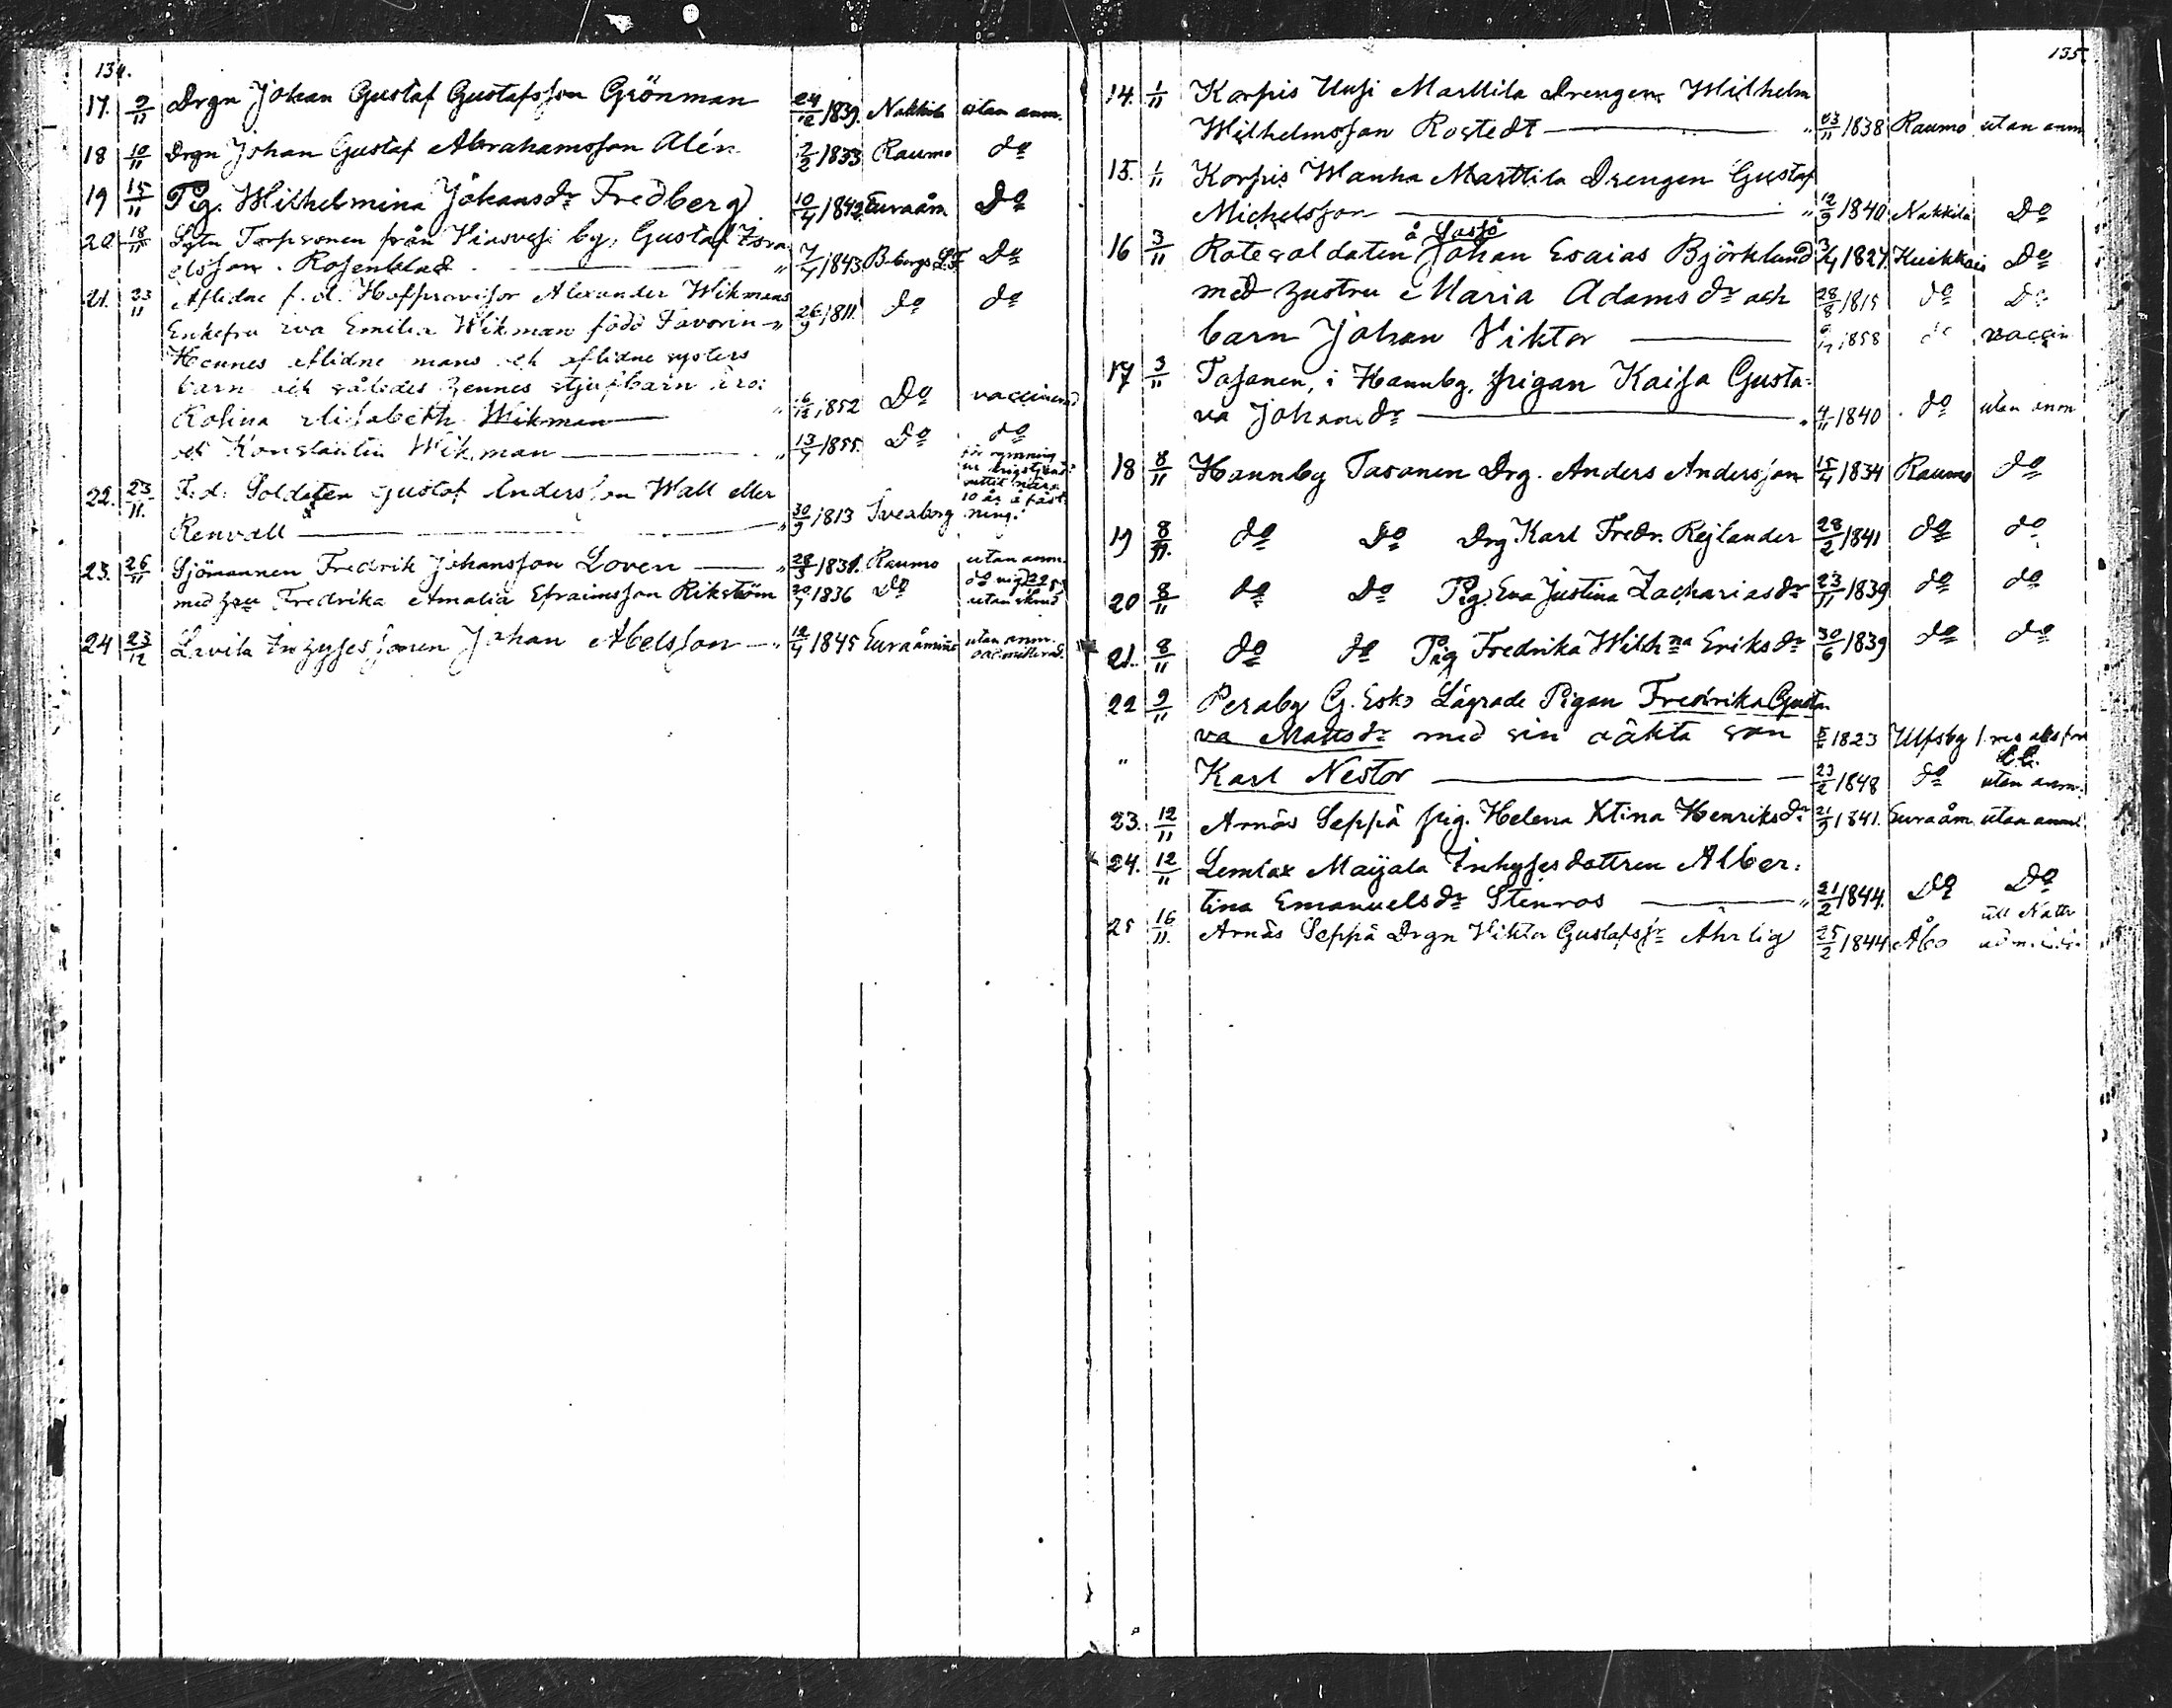 134.
17. 9/11 Drgn Johan Gustaf Gustafsson Grönman 24/12 1839. Nakkila utan anm.
18 10/11 Drgn Johan Gustaf Abrahamsson Alén 2/2 1833 Raumo do
19 15/11 Pig. Wilhelmina Johansdr Fredberg 10/4 1842 Euraåm Do
20. 18/11 Sytn Torpsonen från Wiasvesi by, Gustaf Isra-
elsson Rosenblad " 7/7 1843 B-borgs L.F. Do
21. 23/11 Aflidne f. d. Hofprovisor Alexander Wikmans
Enkefru Eva Emilia Wikman född Favorin " 26/9 1811. do do
Hennes aflidne mans och aflidne systers
barn och således hennes stjufbarn äro:
Rosina Elisabeth Wikman " 16/12 1852 Do vaccinerad
och Konstantin Wikman " 13/7 1855. Do do
22. 23/11. F. d. Soldaten Gustaf Andersson Wall eller för rymning
ur krigstjenst
suttit nära
10 år å fäst-
Renvall " 30/9 1813 Sveaborg ning.
23. 26/11 Sjömannen Fredrik Johansson Loven " 28/3 1831. Raumo utan anm.
med fru Fredrika Amalia Efraimsson Rikström 1836 Do do
24 23/12 Lavila Inhysessonen Johan Abelsson " 12/7 1845 Euraåminne utan anm.
oadmitterad.
135
14. 1/11 Korpis Uusi Marttila Drengen Wilhelm
Wilhelmsson Rostedt " 23/11 1838 Raumo utan anm
15. 1/11 Korpis Wanha Marttila Drengen Gustaf
Michelsson " 12/9 1840 Nakkila Do
16 3/11 Rotesoldaten å Sassi Johan Esaias Björklund 3/4 1827. Do
med hustru Maria Adamsdr och 28/8 1815 do Do
barn Johan Viktor 1858 do vaccin
17 3/11 Tasanen, i Hannby, pigan Kaisa Gusta-
va Johansdr " 4/11 1840 do utan anm
18 8/11 Hannby Tasanen Drg. Anders Andersson 15/4 1834 Raumo do
19 8/11. do Do Drg. Karl Fredr. Rejlander 28/2 1841 do do
20 8/11 do Do Pig. Eva Justina Zachariasdr 23/11 1839 do do
21. 8/11 do do Pig Fredrika Wilhna Eriksdr 30/6 1839 do do
22 9/11 Peraby G. Esko Lägrade Pigan Fredrika Gusta-
va Mattsdr med sin oäkta son 1823 Ulfsby
" Karl Nestor 23/2 1848 do utan anm.
23. 12/11 Arnäs Seppä pig. Helena Xtina Henriksdr 21/9 1841. Euraåm utan anm.
24. 12/11 Lemlax Maijala Inhysesdottren Alber-
tina Emanuelsdr Stenros " 21/2 1844. Do Do
25 16/11. Arnäs Seppä Drgn Viktor Gustafsson Ährlig 25/2 1844 Åbo till Nattv